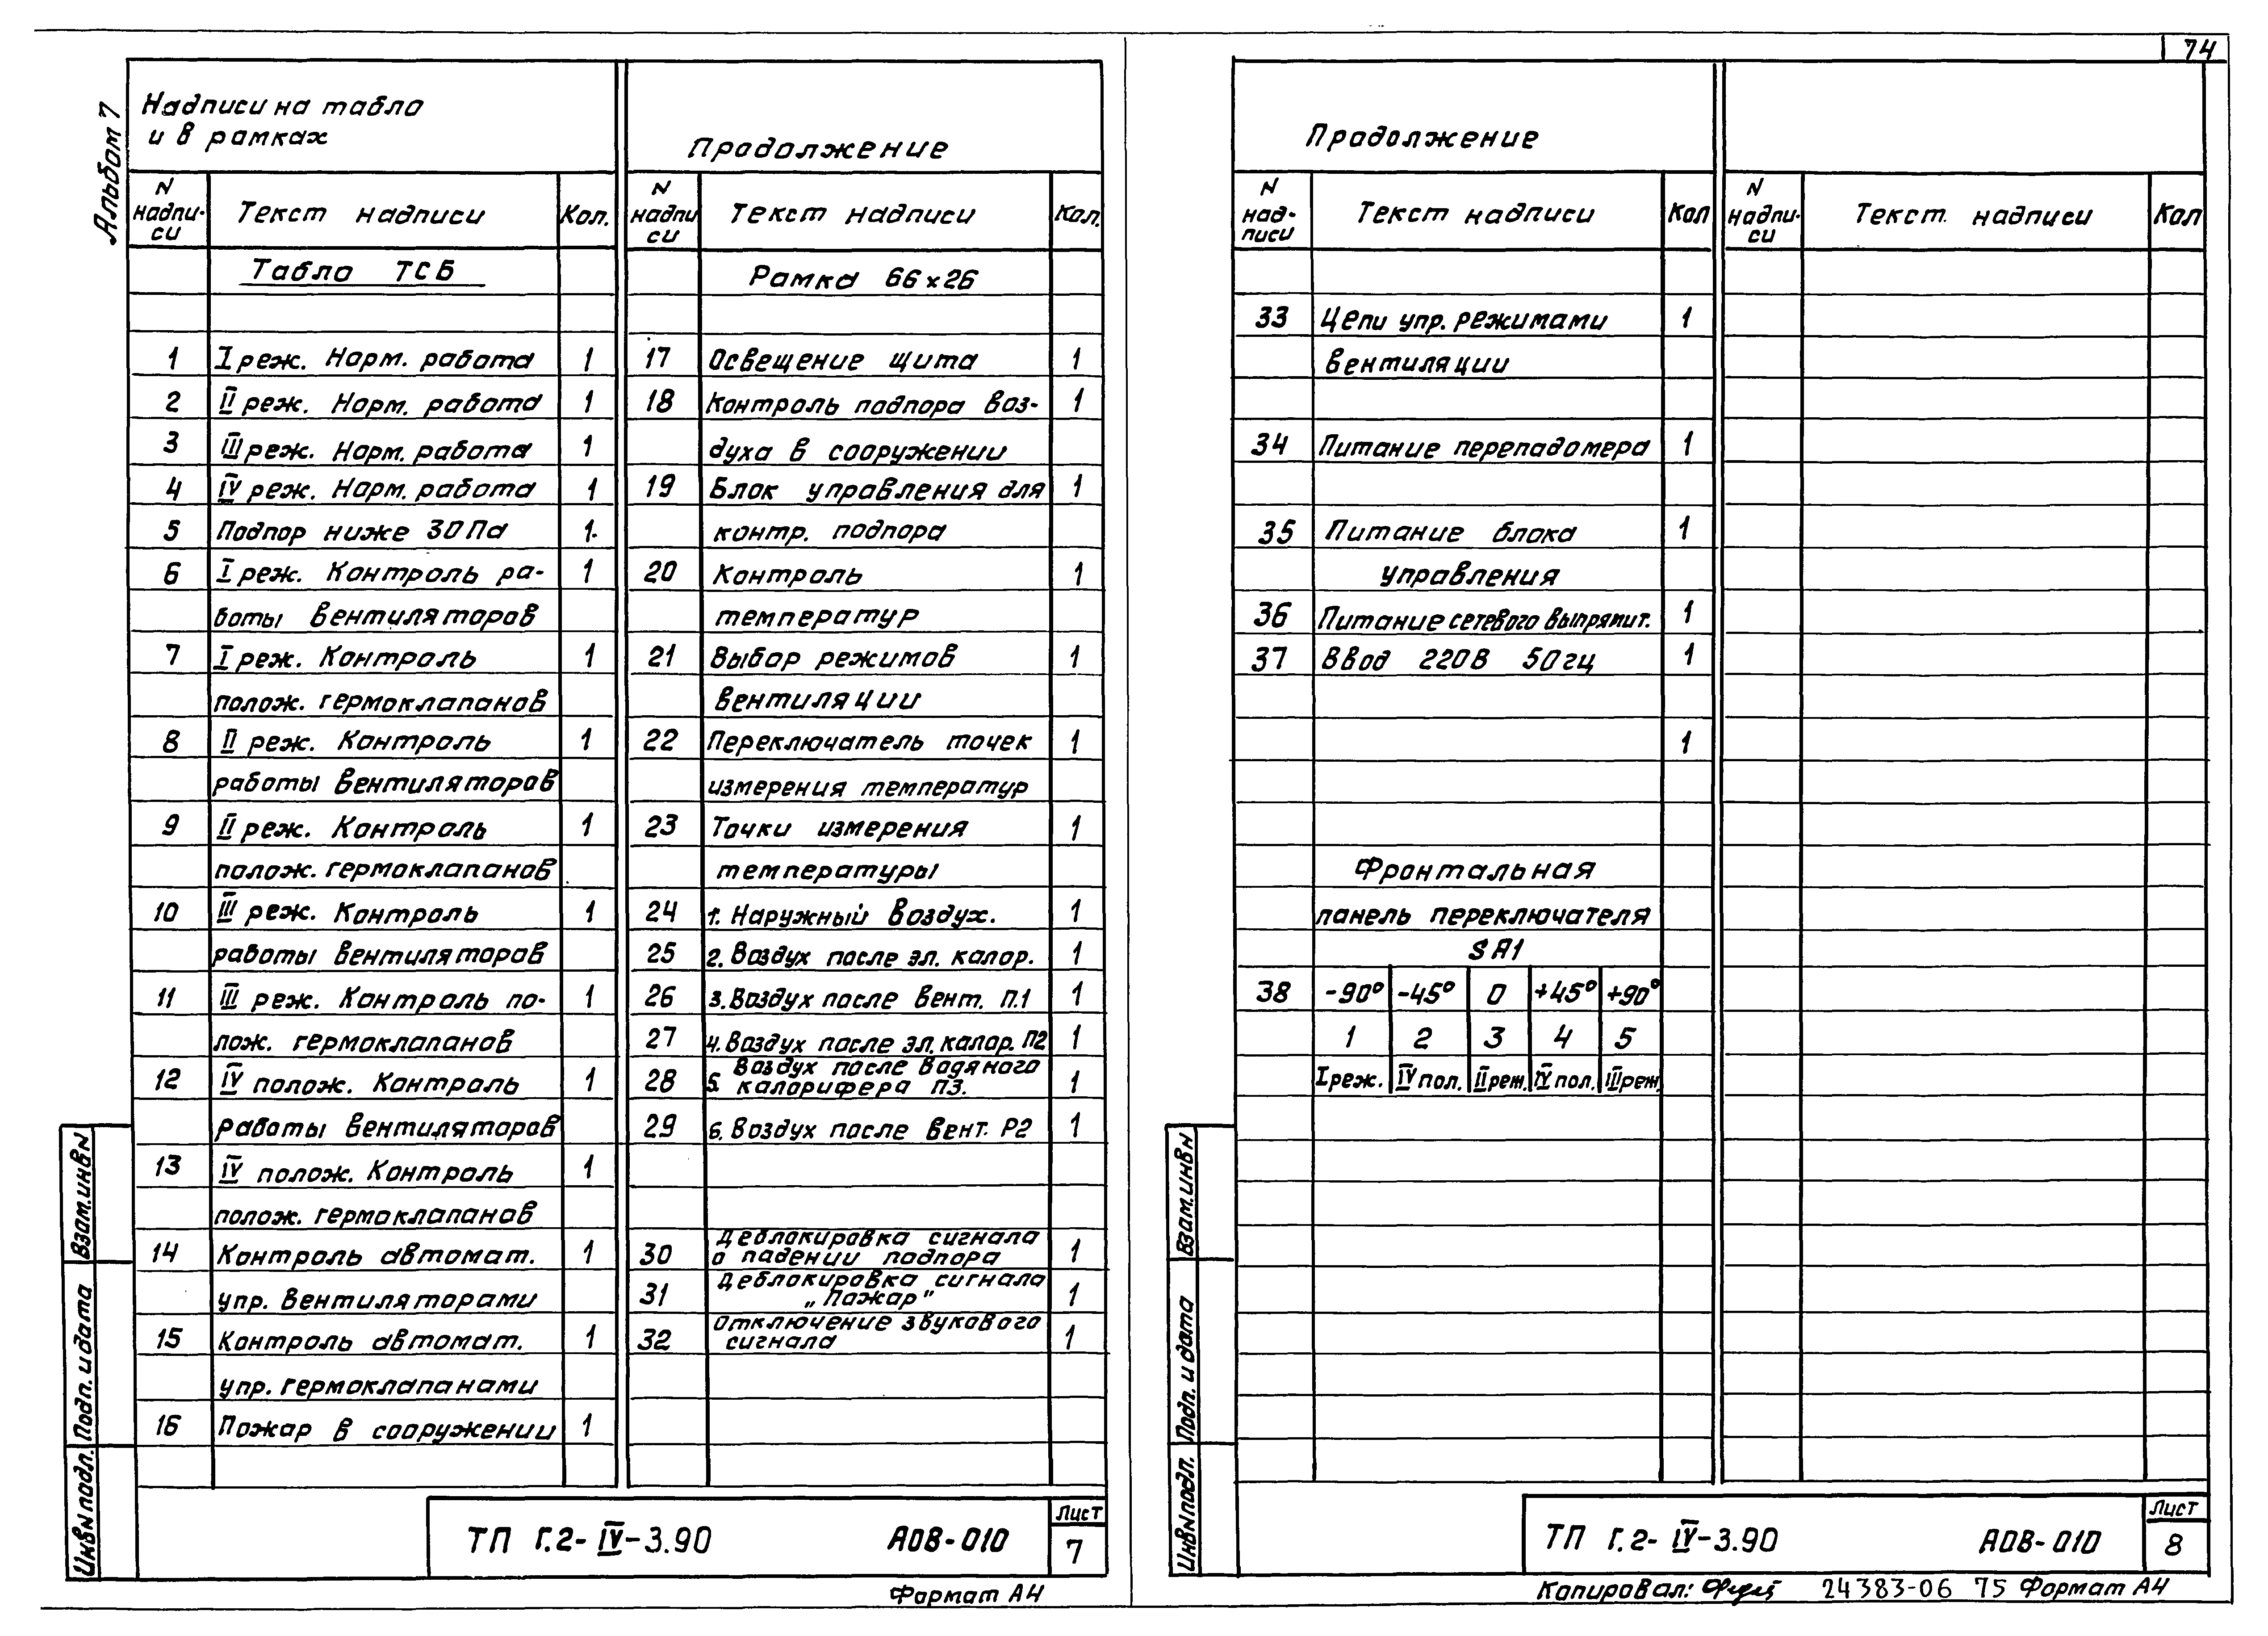 74
Альбом 7
Надписи на табло
и в рамках
N надпи-си Текст надписи Кол.
Табло ТСБ
1 I реж. Норм. работа 1
2 II реж. Норм. работа 1
3 III реж. Норм. работа 1
4 IV реж. Норм. работа 1
5 Подпор ниже 30 Па 1.
6 I реж. Контроль ра- 1
боты вентиляторов
7 I реж. Контроль 1
полож. гермоклапанов
8 II реж. Контроль 1
работы вентиляторов
9 II реж. Контроль 1
полож. гермоклапанов
10 III реж. Контроль 1
работы вентиляторов
11 III реж. Контроль по- 1
лож. гермоклапанов
12 IV полож. Контроль 1
работы вентиляторов
13 IV полож. Контроль 1
полож. гермоклапанов
14 Контроль автомат. 1
упр. вентиляторами
15 Контроль автомат. 1
упр. гермоклапанами
16 Пожар в сооружении 1
Продолжение
N надпи си Текст надписи Кол.
Рамка 66×26
17 Освещение щита 1
18 Контроль подпора воз- 1
духа в сооружении
19 Блок управления для 1
контр. подпора
20 Контроль 1
температур
21 Выбор режимов 1
вентиляции
22 Переключатель точек 1
измерения температур
23 Точки измерения 1
температуры
24 1. Наружный воздух. 1
25 2. Воздух после эл. калор. 1
26 3. Воздух после вент. П.1 1
27 4. Воздух после эл. калор. П2 1
28 5. Воздух после водяного
калорифера П3. 1
29 6. Воздух после вент. Р2 1
30 Деблокировка сигнала
о падении подпора 1
31 Деблокировка сигнала
„Пожар" 1
32 Отключение звукового
сигнала 1
Взам. инв N
Подп. и дата
Инв N подл.
ТП Г.2-IV-3.90 АОВ-010
Лист
7
Формат А4
Продолжение
N над-писи Текст надписи Кол
33 Цепи упр. режимами 1
вентиляции
34 Питание перепадомера 1
35 Питание блока 1
управления
36 Питание сетевого выпрямит. 1
37 Ввод 220В 50гц 1
1
Фронтальная
панель переключателя
SA1
38 -90° -45° 0 +45° +90°
1 2 3 4 5
I реж. IV пол. II реж. IV пол. III реж.
N надпи-си Текст. надписи Кол
Взам. инв N
Подп. и дата
Инв N подл.
ТП Г.2-IV-3.90 АОВ-010
Лист
8
Копировал: 24383-06 75 Формат А4